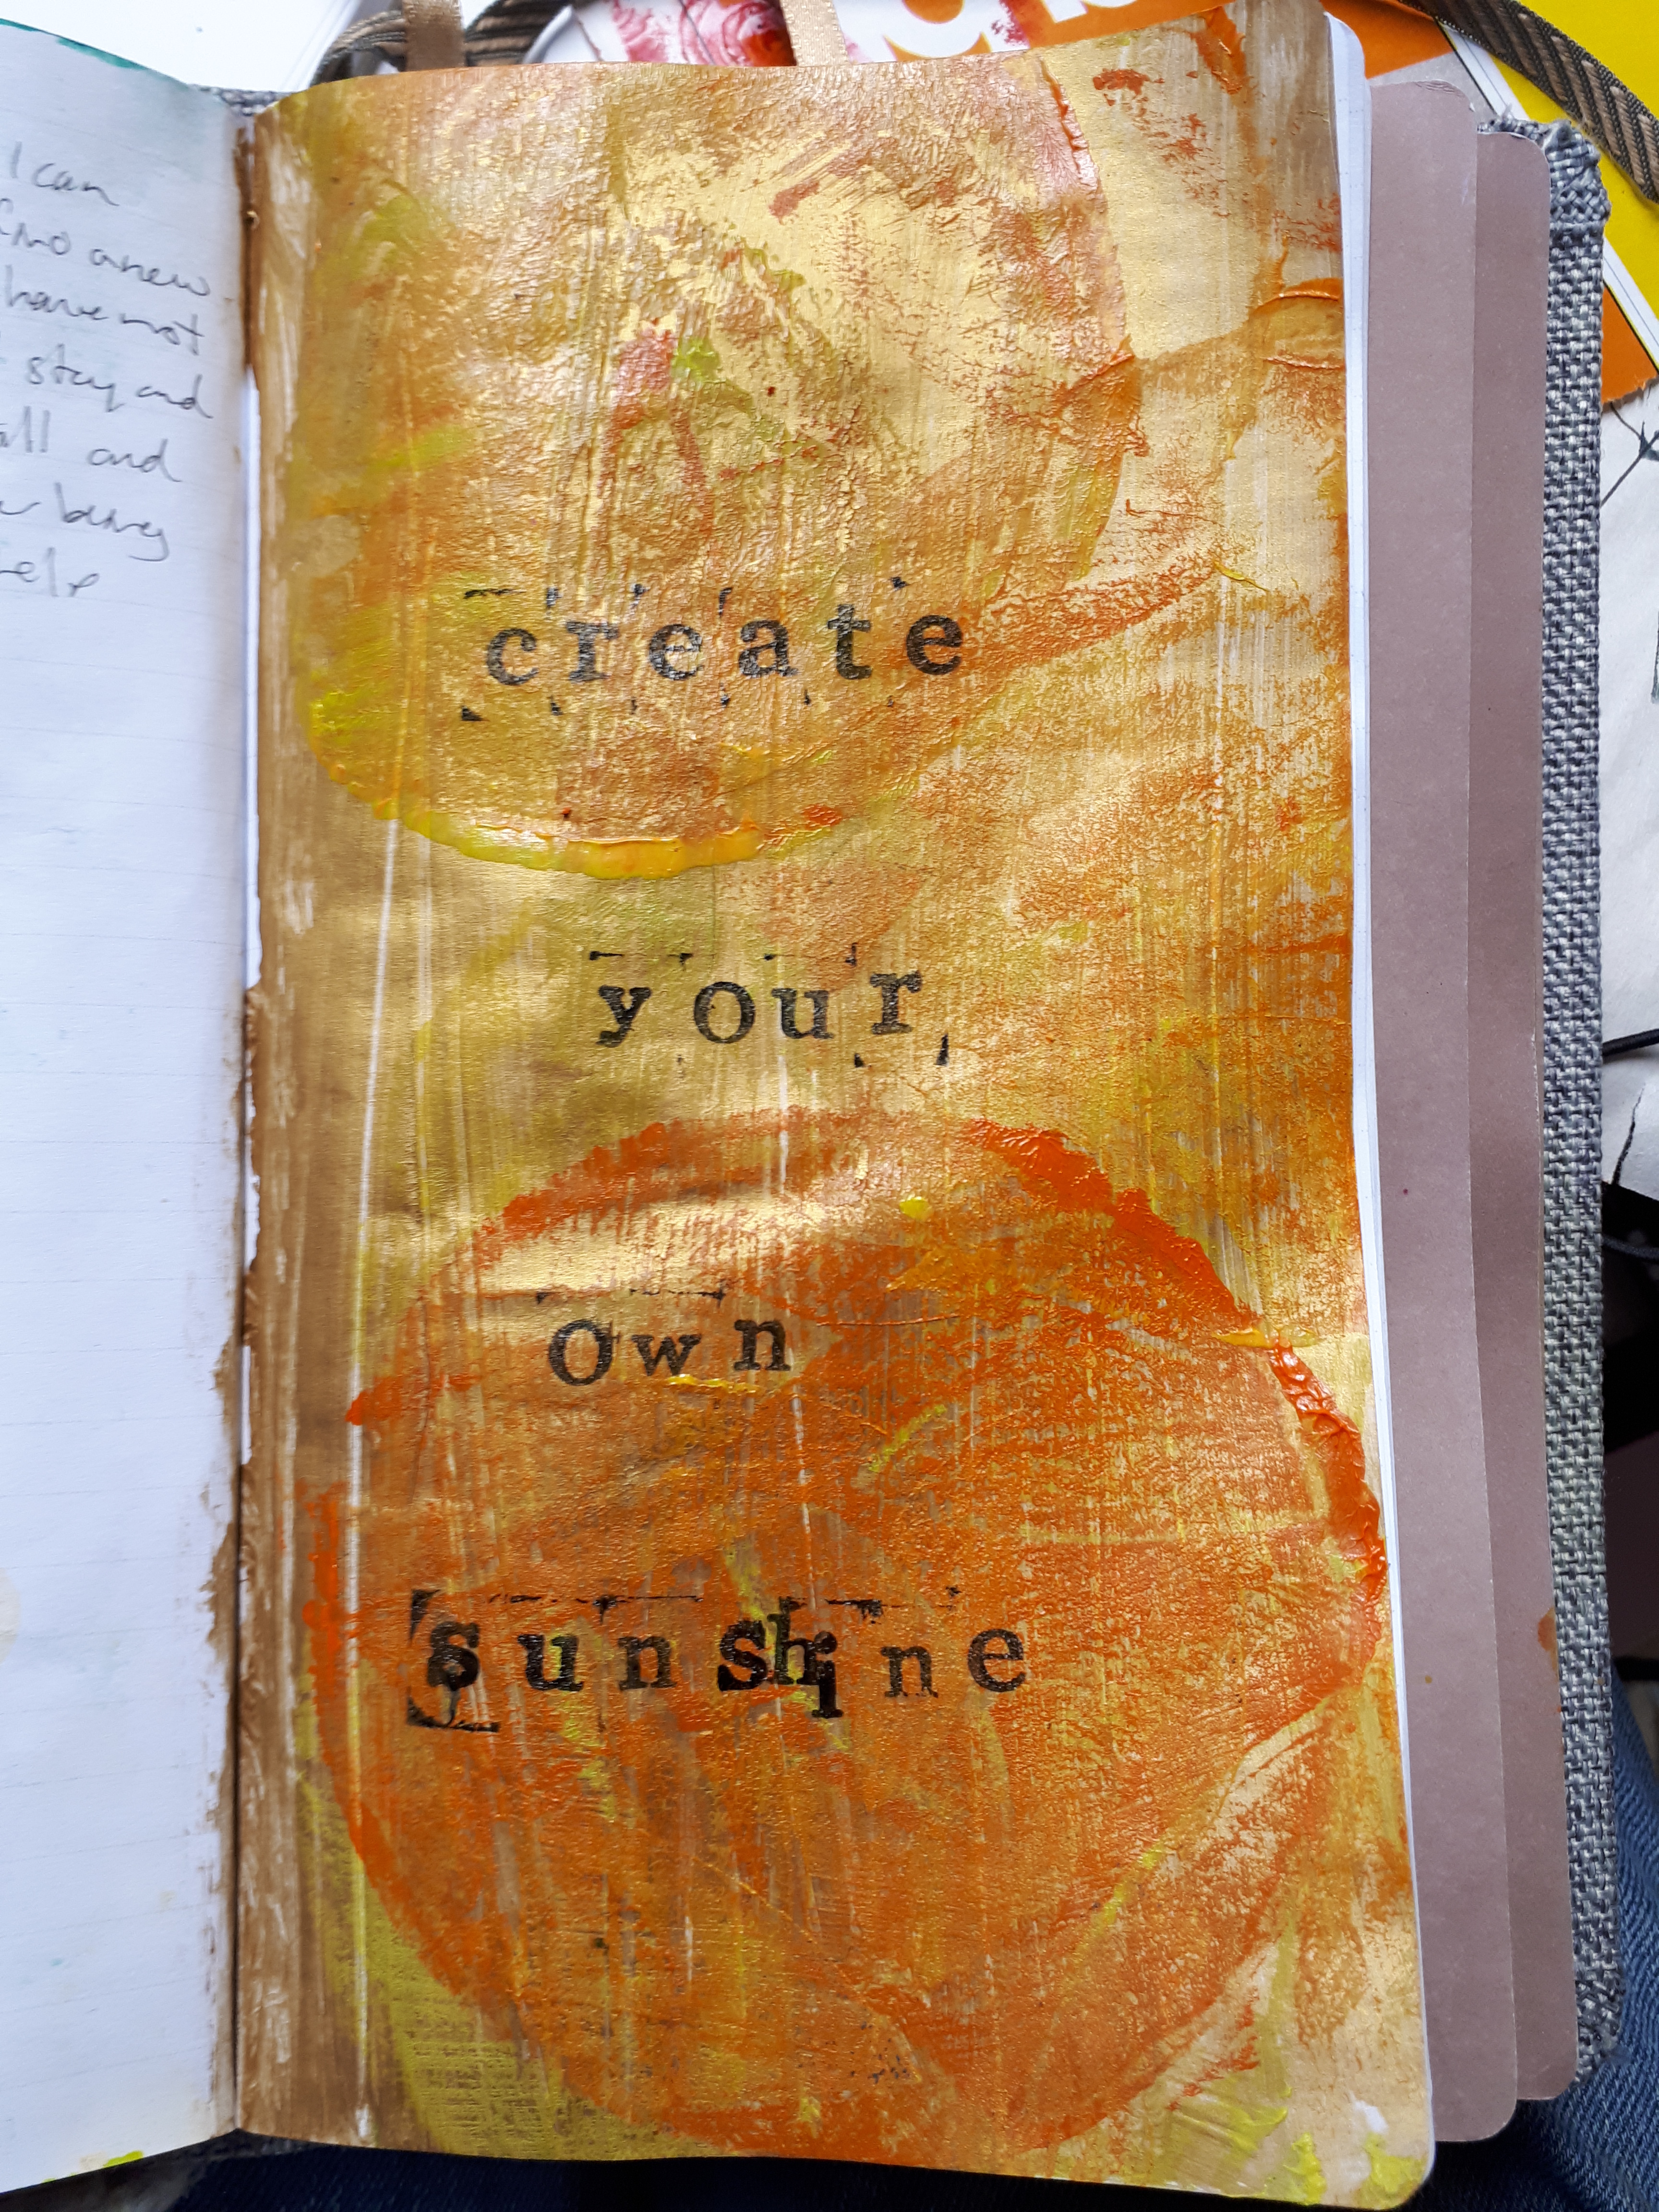 I can
a new
have not
stay and
all and
create
your
own
sunshine